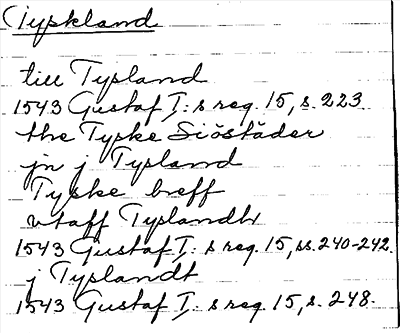 Tyskland
till Tysland
1543 Gustaf I: s reg. 15, s. 223.
the Tyske Siöstäder
jn j Tysland
Tyske breff
vtaff Tyslandh
1543 Gustaf I: s reg. 15, ss. 240-242.
j Tyslandt
1543 Gustaf I: s reg. 15, s. 248.